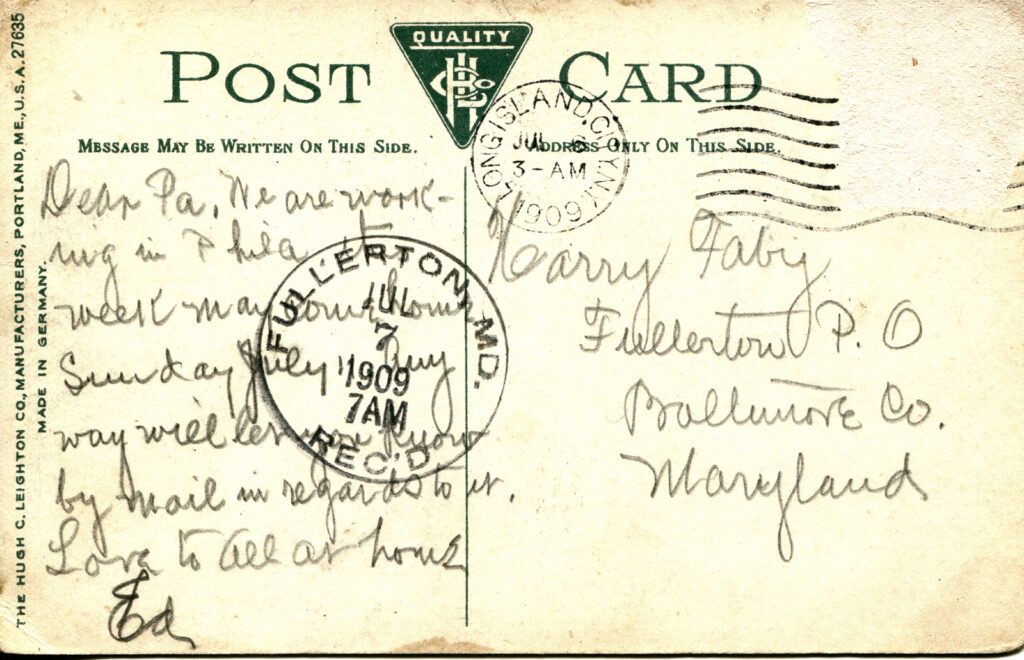 THE HUGH C. LEIGHTON CO., MANUFACTURERS, PORTLAND, ME., U.S.A. 27635
MADE IN GERMANY.
QUALITY
POST CARD
MESSAGE MAY BE WRITTEN ON THIS SIDE.
ADDRESS ONLY ON THIS SIDE.
LONG ISLAND CITY, N.Y.
JUL 6
3-AM
1909
Dear Pa, We are work-
ing in Phila
week may come home
Sunday July
way will let you know
by mail in regards to it.
Love to all at home
Ed
FULLERTON, MD.
JUL
7
1909
7AM
REC'D
Harry Fabig
Fullerton P. O
Baltimore Co.
Maryland